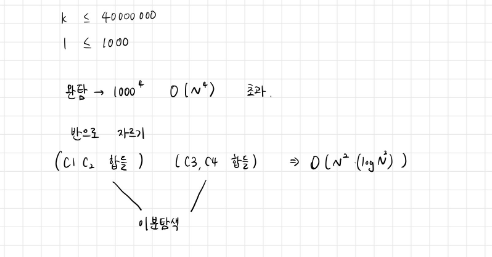 k ≤ 40000000
1 ≤ 1000
완탐 → 1000⁴ O(N⁴) 초과.
반으로 자르기
(C1 C2 합들) (C3, C4 합들) ⇒ O(N² (logN²))
이분탐색